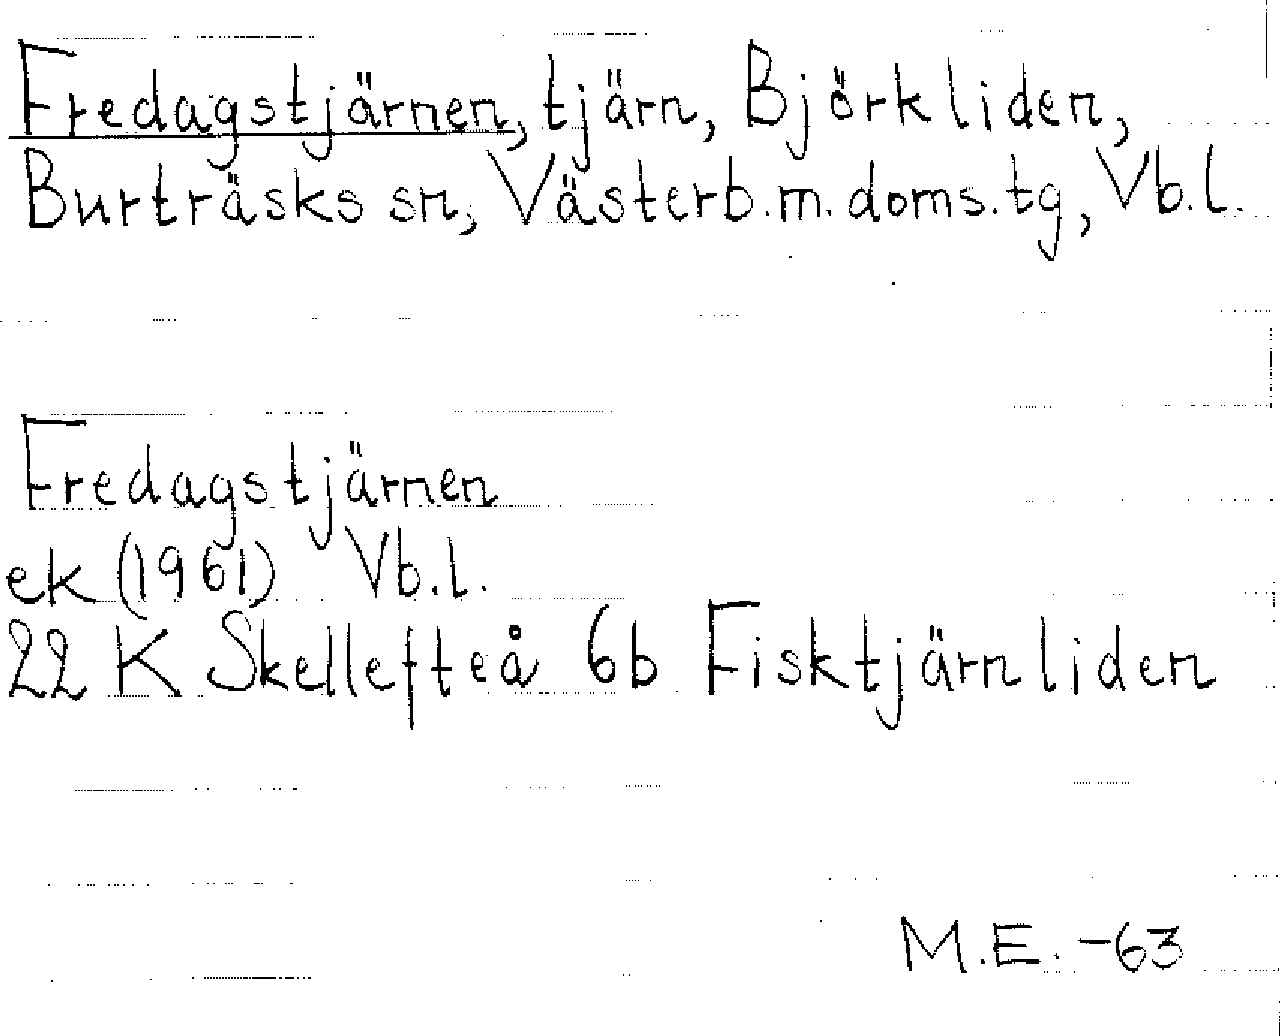 Fredagstjärnen, tjärn, Björkliden,
Burträsks sn, Västerb.m.doms.tg, Vb.l.
Fredagstjärnen
ek (1961) Vb.l.
22 K Skellefteå 6b Fisktjärnliden
M.E. -63